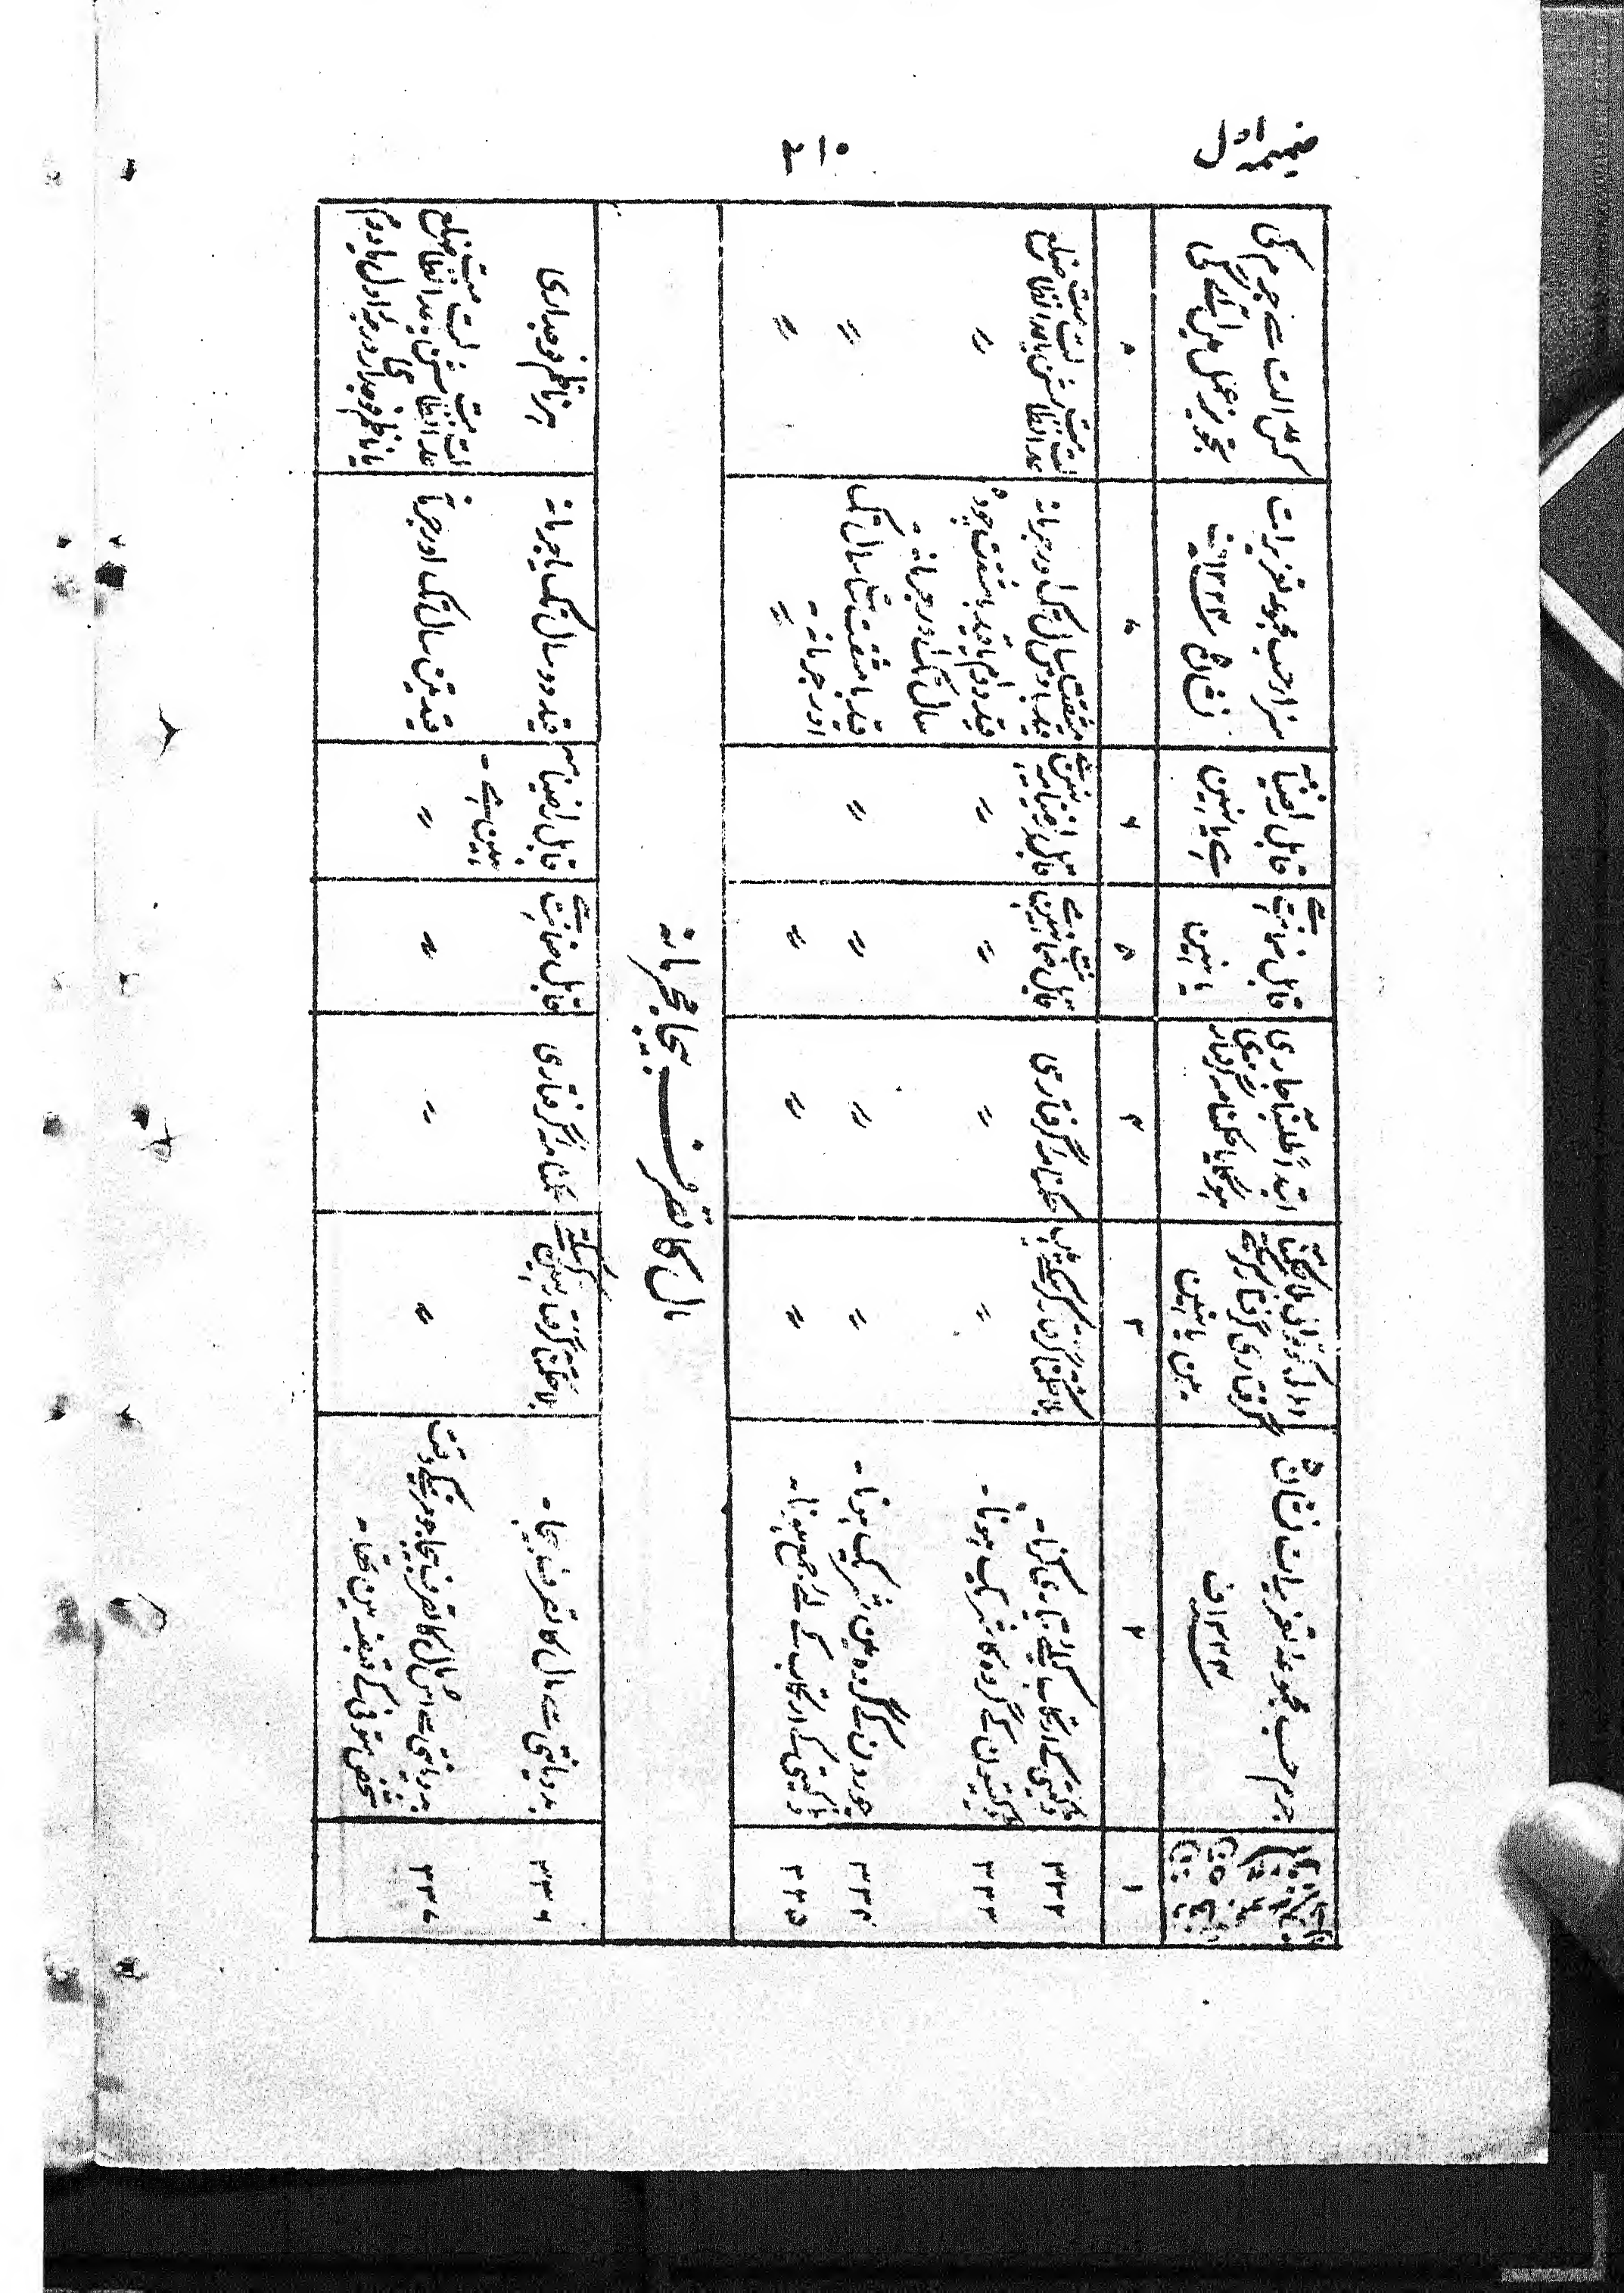 ضمیمہ اول
۲۱۰
جرم حسب مجموعہ تعزیرات نشان
۳ ۱۳۲۳ف
اہل کوتوالی بلا حکمنامہ
گرفتاری گرفتار کرسکتے
ہین یا نہین
ابتداً طلبنامہ جاری
ہوگا یا حکمنامہ گرفتاری
قابل ضمانت ہے
یا نہین
قابل راضینامہ
ہے یا نہین
سزا حسب مجموعہ تعزیرات
نشان ۳ ۱۳۲۳ف
کس عدالت سے جرم کی
تجویز عمل مین آئے گی
۱
۲
۳
۴
۵
۶
۷
۸
۳۳۲
ڈکیتی کے ارتکاب کیلئے تیاری کرنا۔
بلا حکمنامہ گرفتار کرسکتے ہین
حکمنامہ گرفتاری
قابل ضمانت نہین ہے
قابل راضینامہ نہین ہے
قید بامشقت دس سال تک اور جرمانہ
عدالت نظامت سشن یا عدالت نظامت ضلع
۳۳۳
ڈاکیتیون کے گروہ کا شریک ہونا۔
〃
〃
〃
〃
قید دوام یا قید بامشقت چودہ
سال تک اور جرمانہ۔
〃
۳۳۴
چورون کے گروہ مین شریک ہونا۔
〃
〃
〃
〃
قید بامشقت سات سال تک
اور جرمانہ۔
〃
۳۳۵
ڈاکیتی کے ارتکاب کے لئے جمع ہونا۔
〃
〃
〃
〃
〃
مال کا تصرف بیجا مجرمانہ
۳۳۶
بددیانتی سے مال کا تصرف بیجا۔
بلا حکمنامہ گرفتار نہین کرسکتے
حکمنامہ گرفتاری
قابل ضمانت ہے
قابل راضینامہ
نہین ہے۔
قید دو سال تک یا جرمانہ
ہر ناظم فوجداری
۳۳۷
بددیانتی سے اس مال کا تصرف بیجا جو مرنیکے وقت
شخص متوفی کے قبضہ مین تھا۔
〃
〃
〃
〃
قید تین سال تک اور جرمانہ
عدالت نظامت سشن یا عدالت نظامت ضلع
یا ناظم فوجداری درجہ اول یا دوم